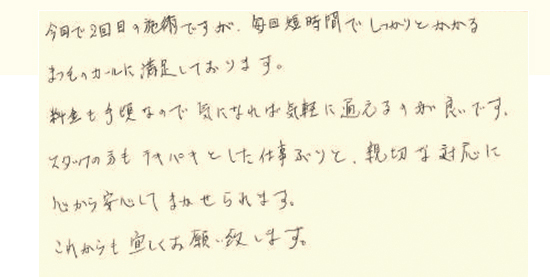 今日で2回目の施術ですが、毎回短時間でしっかりとかかる
まつものカールに満足しております。
料金も手頃なので気になれば気軽に通えるのが良いです。
スタッフの方もテキパキとした仕事ぶりと、親切な対応に
心から安心してまかせられます。
これからも宜しくお願い致します。